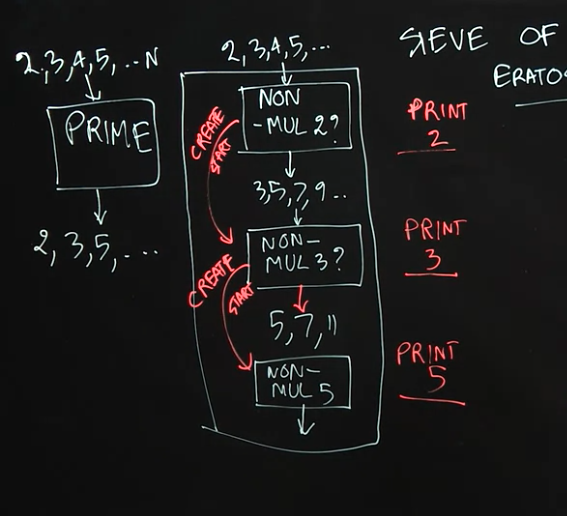 2,3,4,5,..N
PRIME
2, 3,5,...
2,3,4,5,...
NON
-MUL 2?
CREATE
START
3,5,7,9..
NON-
MUL 3?
CREATE
START
5,7,11
NON-
MUL 5
SIEVE OF
ERATOS
PRINT
2
PRINT
3
PRINT
5